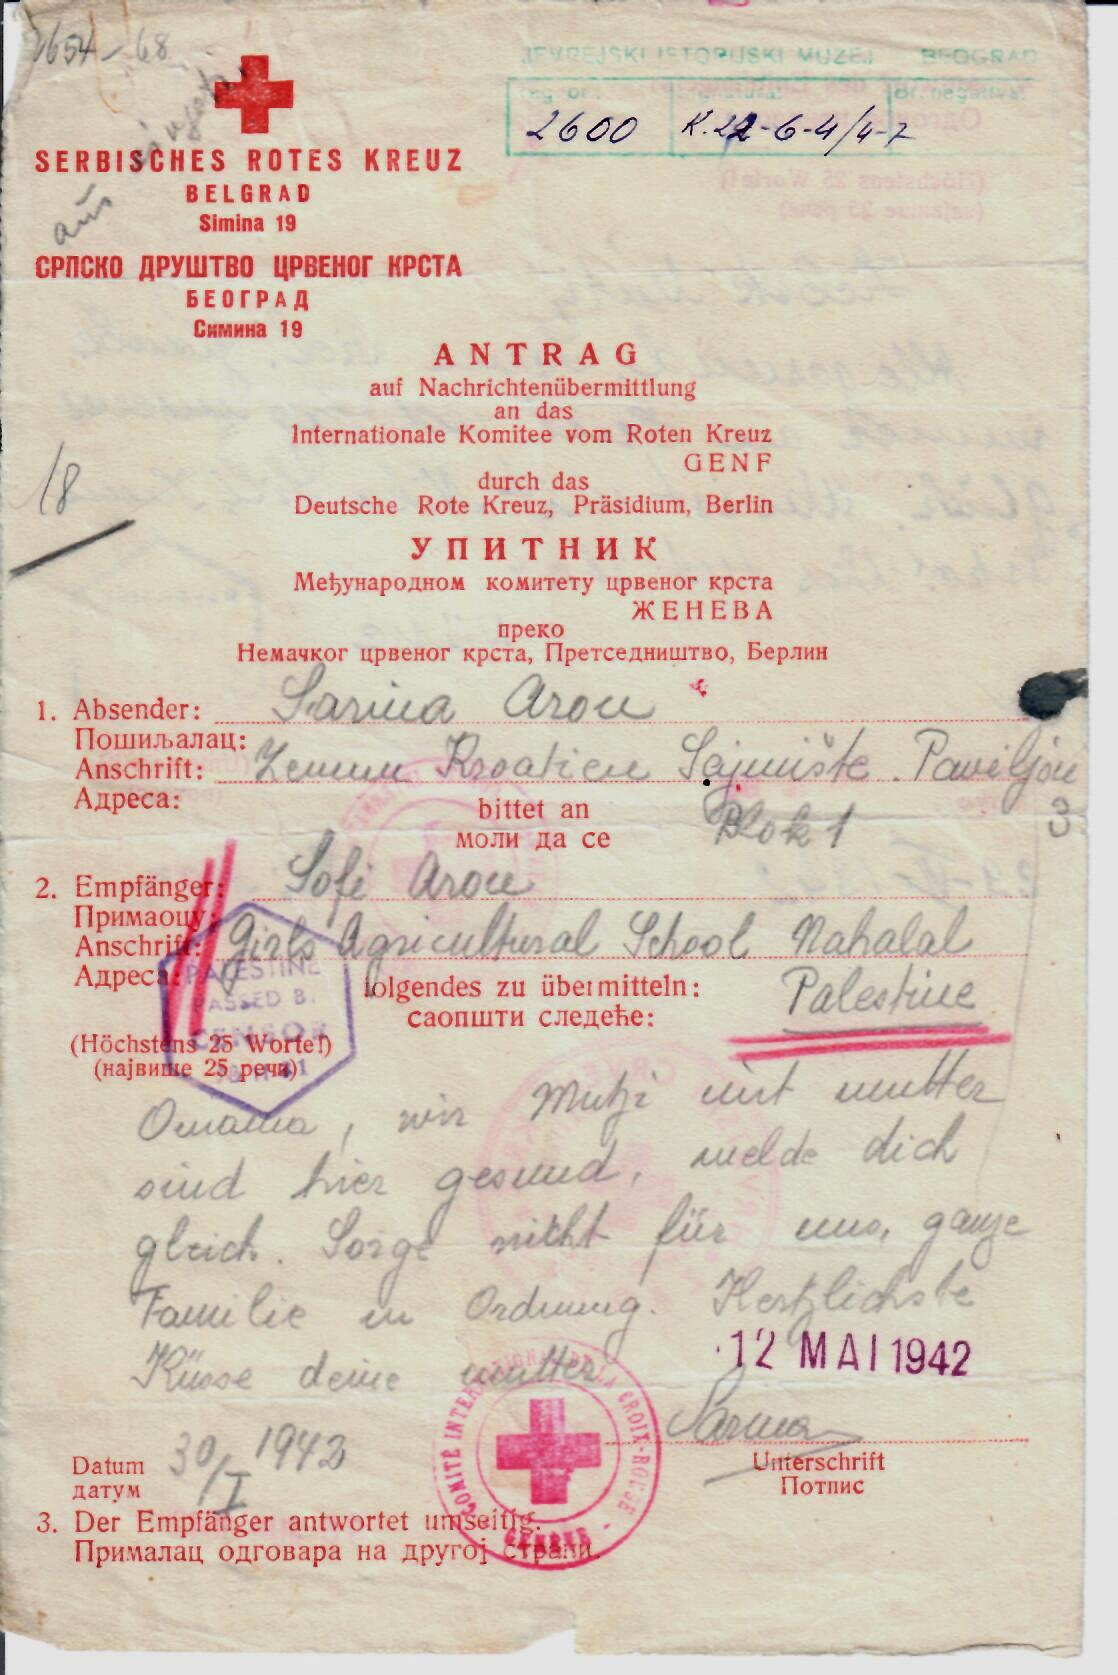 2654-68
JEVREJSKI ISTORIJSKI MUZEJ BEOGRAD
2600 K.22-6-4/4-7
SERBISCHES ROTES KREUZ
BELGRAD
Simina 19
aus
СРПСКО ДРУШТВО ЦРВЕНОГ КРСТА
БЕОГРАД
Симина 19
ANTRAG
auf Nachrichtenübermittlung
an das
Internationale Komitee vom Roten Kreuz
GENF
durch das
Deutsche Rote Kreuz, Präsidium, Berlin
18
УПИТНИК
Међународном комитету црвеног крста
ЖЕНЕВА
преко
Немачког црвеног крста, Претседништво, Берлин
1. Absender: Sarina Aron
Пошиљалац:
Anschrift: Zemun Kroatien Sajmište. Paviljon 3
Адреса:
bittet an Blok 1
моли да се
2. Empfänger: Sofi Aron
Примаоцу:
Anschrift: Girls Agricultural School Nahalal
Адреса:
folgendes zu übermitteln: Palestine
саопшти следеће:
PALESTINE
PASSED B.
CENSOR
(Höchstens 25 Worte!)
(највише 25 речи)
Omama, wir Mutzi mit mutter
sind hier gesund, melde dich
gleich. Sorge nicht für uns, ganze
Familie in Ordnung. Hertzlichste
Küsse deine mutter
12 MAI 1942
Sarina
Datum 30/I 1942
датум
Unterschrift
Потпис
COMITÉ INTERNATIONAL DE LA CROIX-ROUGE - GENÈVE -
3. Der Empfänger antwortet umseitig.
Прималац одговара на другој страни.